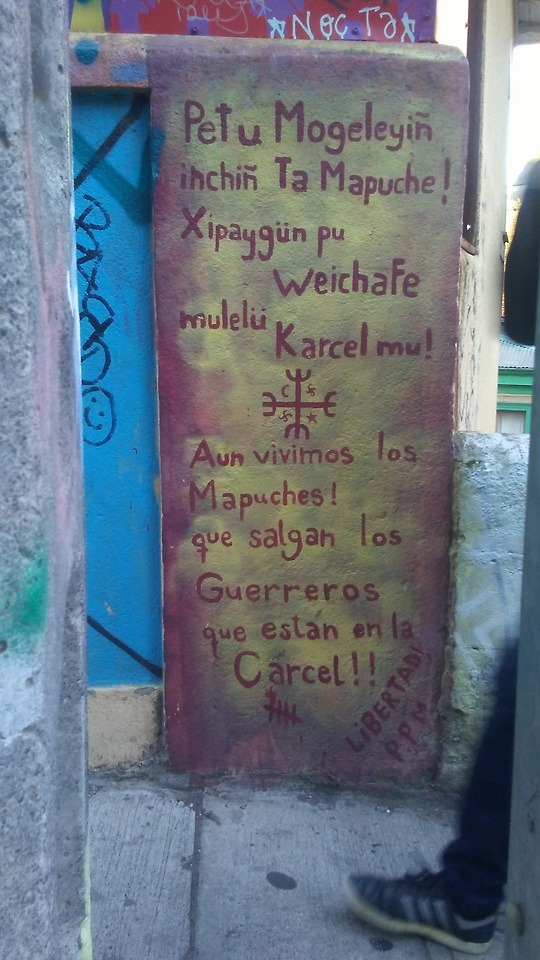 NOC TA
Petu Mogeleyiñ
inchiñ Ta Mapuche!
Xipaygün pu
Weichafe
mulelü
Karcel mu!
Aun vivimos los
Mapuches!
que salgan los
Guerreros
que estan en la
Carcel!!
LiBERTAD!
P.P.M